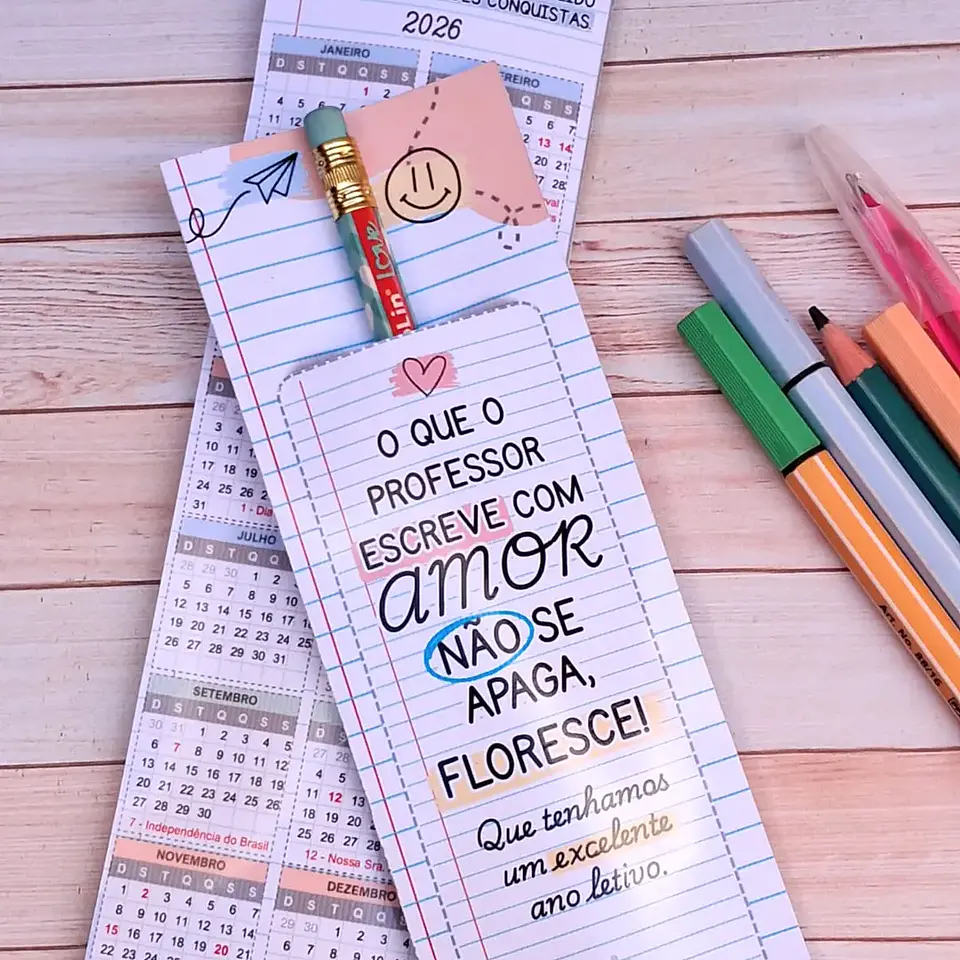 CONQUISTAS.
2026
JANEIRO
D S T Q Q S S
1 2
4 5 6 7
11 12
EREIRO
Q S S
5 6 7
2 13 14
20 21
27 28
Love
O QUE O
PROFESSOR
ESCREVE COM
AMOR
NÃO SE
APAGA,
FLORESCE!
Que tenhamos
um excelente
ano letivo.
D
26
3 4
10 11 12
17 18 19
24 25 26
31
JULHO
D S T Q Q
28 29 30 1 2
5 6 7 8 9 10
12 13 14 15 16 17 18
19 20 21 22 23 24 25
26 27 28 29 30 31
SETEMBRO
D S T Q Q S S
30 31 1 2 3 4 5
6 7 8 9 10 11 12
13 14 15 16 17 18 19
20 21 22 23 24 25 26
27 28 29 30
7 - Independência do Brasil
27 28
4 5
11 12 13
18 19 20
25 26 27 28
12 - Nossa Sra.
NOVEMBRO
D S T Q Q S S
1 2 3 4 5 6 7
8 9 10 11 12 13 14
15 16 17 18 19 20 21
22 23 24 25 26 27 28
DEZEMBRO
D S T Q Q
29 30 1 2 3 4
6 7 8 9 10 11
Art. No 88/16